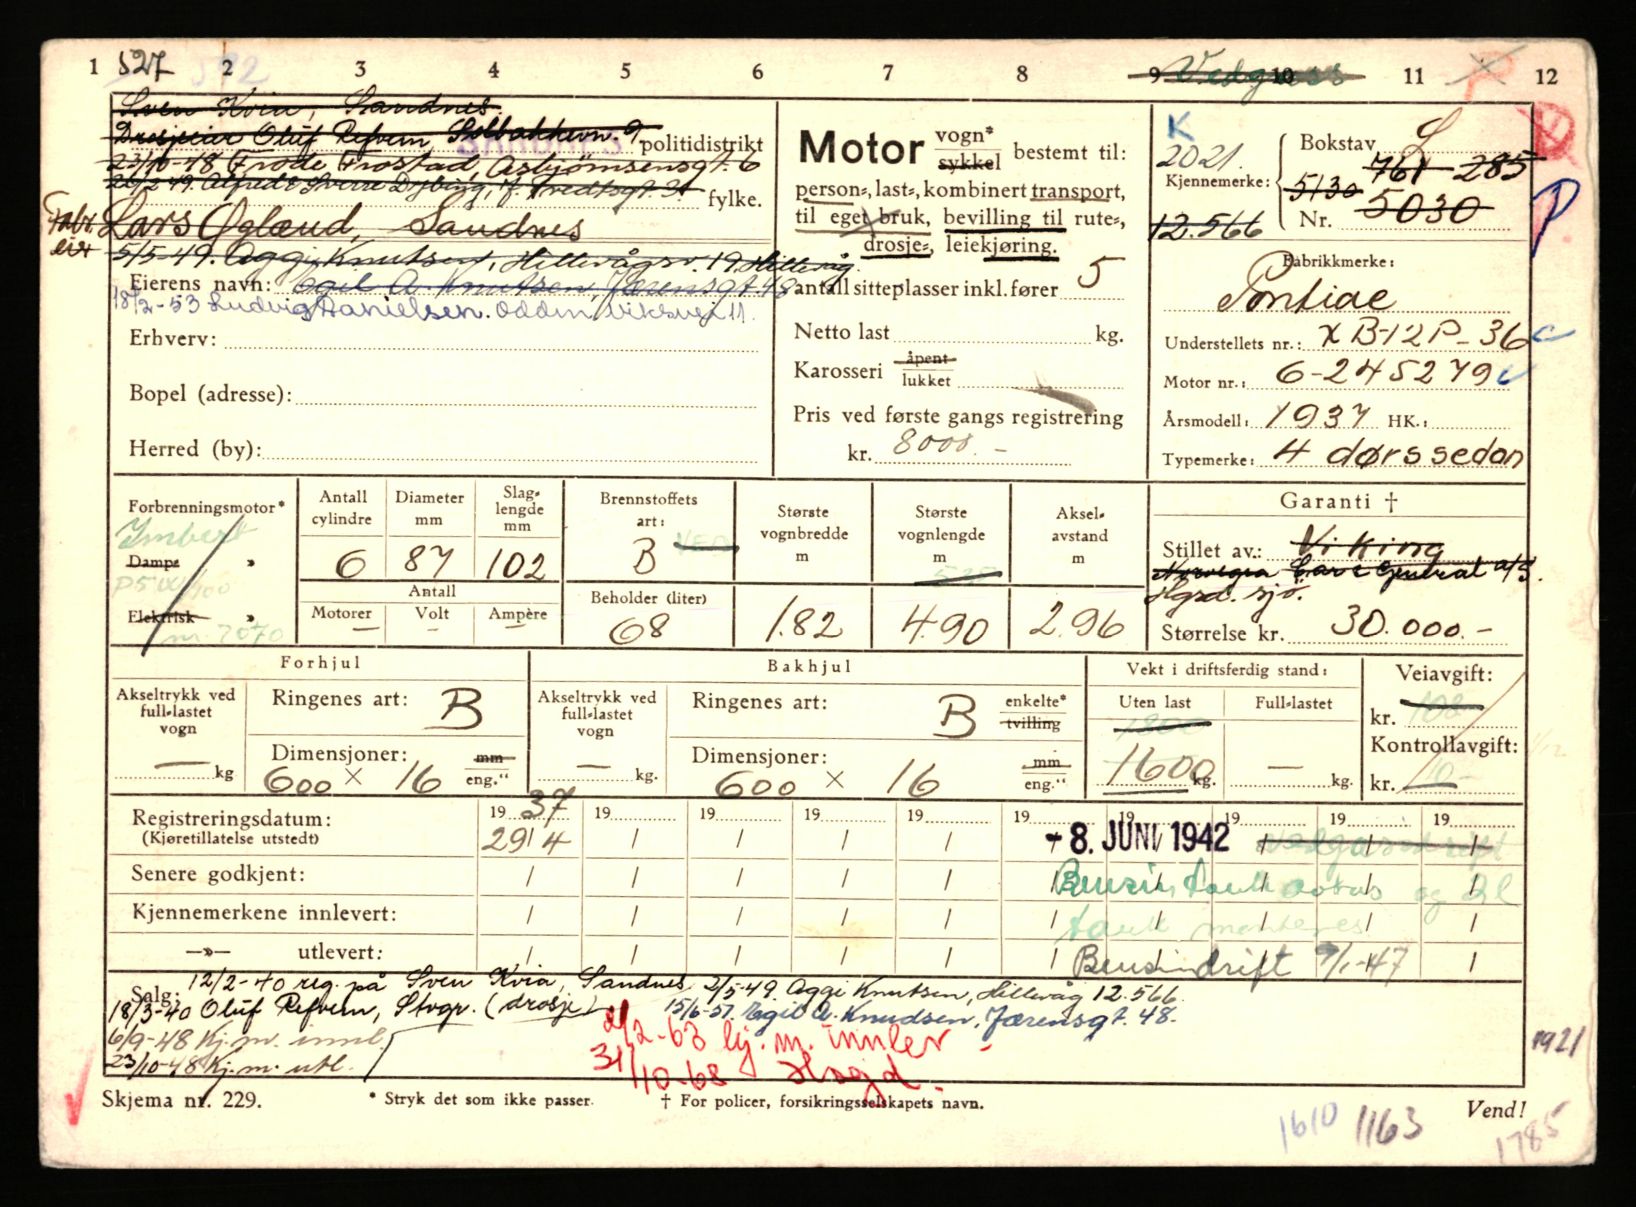 1 527 2 3 4 5 6 7 8 9 10 11 12
Vedgass
Sven Kvia, Sandnes.
Drosjeeier Oluf Refvem, Solbakkevn. 9
SANDNES politidistrikt
23/10-48 Frode Frostad, Asbjørnsensgt. 6
fylke.
Lars Øglænd, Sandnes
5/5-49. Aggi Knutsen, Hillevågsv. 19 Hillevåg.
Eierens navn: Egil A. Knutsen, Jærensgt. 48
18/2-53 Ludvig Danielsen. Oddm. Viksvei 11.
Erhverv:
Bopel (adresse):
Herred (by):
Motor vogn* sykkel bestemt til:
person-, last-, kombinert transport,
til eget bruk, bevilling til rute-,
drosje-, leiekjøring.
antall sitteplasser inkl. fører 5
Netto last kg.
Karosseri åpent lukket
Pris ved første gangs registrering
kr. 8000.-
K
2021.
Kjennemerke:
12.566
Bokstav L
761 285
5130
Nr. 5030
P
Fabrikkmerke:
Pontiac
Understellets nr.: X B-12P-36
Motor nr.: 6-245279
Årsmodell: 1937 HK.:
Typemerke: 4 dørs sedan
Forbrenningsmotor*
Imbert
Damp* »
Elektrisk »
nr. 7070
Antall cylindre 6
Diameter mm 87
Slaglengde mm 102
Antall
Motorer — Volt — Ampère —
Brennstoffets art: B VED
Beholder (liter) 68
Største vognbredde m 1.82
Største vognlengde m 4.90
Aksel-avstand m 2.96
Garanti †
Stillet av: Viking
Norvegia Care General a/S.
Hgsd. sjø.
Størrelse kr. 30.000.-
Forhjul
Akseltrykk ved full-lastet vogn
— kg
Ringenes art: B
Dimensjoner: mm
600 × 16 eng."
Bakhjul
Akseltrykk ved full-lastet vogn
— kg.
Ringenes art: B enkelte* tvilling
Dimensjoner: mm
600 × 16 eng."
Vekt i driftsferdig stand:
Uten last Full-lastet
1600 kg. — kg.
Veiavgift:
kr. 108
Kontrollavgift:
kr. 10-
19 37 19 19 19 19 19 19 19
Registreringsdatum:
(Kjøretillatelse utstedt)
29/4
- 8. JUNI 1942
Senere godkjent:
Kjennemerkene innlevert:
—»— utlevert:
Bensindrift 9/1-47
Salg: 12/2-40 reg. på Sven Kvia, Sandnes. 2/5-49. Aggi Knutsen, Hillevåg 12.566.
18/3-40 Oluf Refvem, Stvgr. (drosje) 15/6-51. Egil A. Knudsen, Jærensgt. 48.
6/9-48 Kj.m. innl.
23/10-48 Kj.m. utl.
2/2-63 kj.m. innlev -
31/10-68 Hogd.
1921
Skjema nr. 229.
* Stryk det som ikke passer.
† For policer, forsikringsselskapets navn.
Vend!
1610 1163 1785